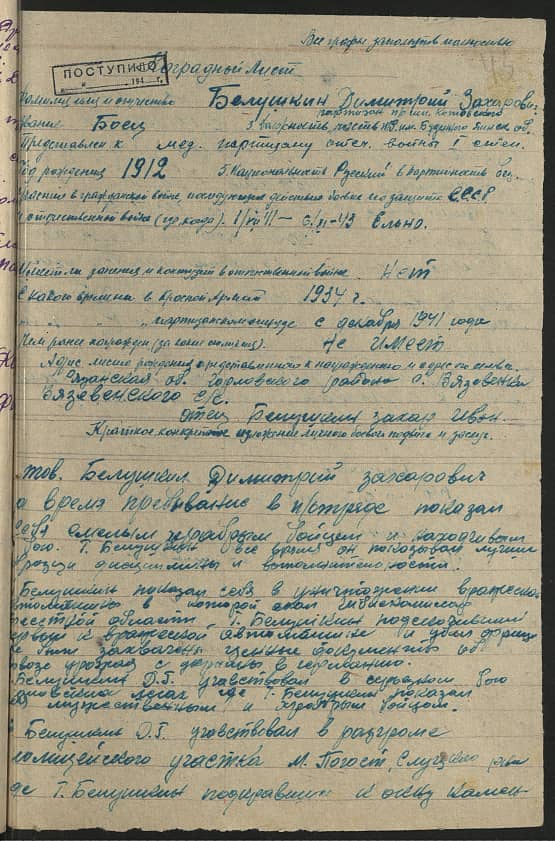 Все графы заполнять полностью
ПОСТУПИЛО
194 г.
Наградной Лист
Фамилия имя и отчество Белушкин Димитрий Захарович
партизан
звание Боец 3 должность, часть им. Буденного Пинск. об.
Представлен к мед. партизану отеч. войны I степ.
Год рождения 1912 5. Национальность Русский 6 партийность б/п.
участие в гражданской войне, последующих действиях по защите СССР
и отечественной войне (где, когда). Ельно.
Имеет ли ранения и контузии в отечественной войне. Нет
С какого времени в Красной Армии 1934 г.
" " партизанском отряде с декабря 1941 года
Чем ранее награжден (за какие отличия). Не имеет
Адрес места рождения представленного к награждению и адрес его семьи.
Рязанская об. Горловского района с. Вязовенка
Вязевенского с/с.
отец Белушкин Захар Иван
Краткое конкретное изложение личного боевого подвига и заслуг.
тов. Белушкин Димитрий Захарович
а время пребывание в п/отряде показал
себя смелым храбрым бойцом и находчивым
бою. Т. Белушкин все время он показывал лучшие
образцы дисциплины и выполнительности.
Белушкин показал себя в уничтожении вражеской
автомашины в которой ехал
Брестской области Т. Белушкин подскочивший
первый к вражеской автомашине и убил
где были захвачены ценные документы об
угрозах с державы в германию.
Белушкин Д.З. участвовал в серьезном бою
лесах где Т. Белушкин показал
себя мужественным и храбрым бойцом.
Белушкин Д.З. участвовал в разгроме
полицейского участка м. Погост, Слуцкого района
где Т. Белушкин подкравшись к окну камен-